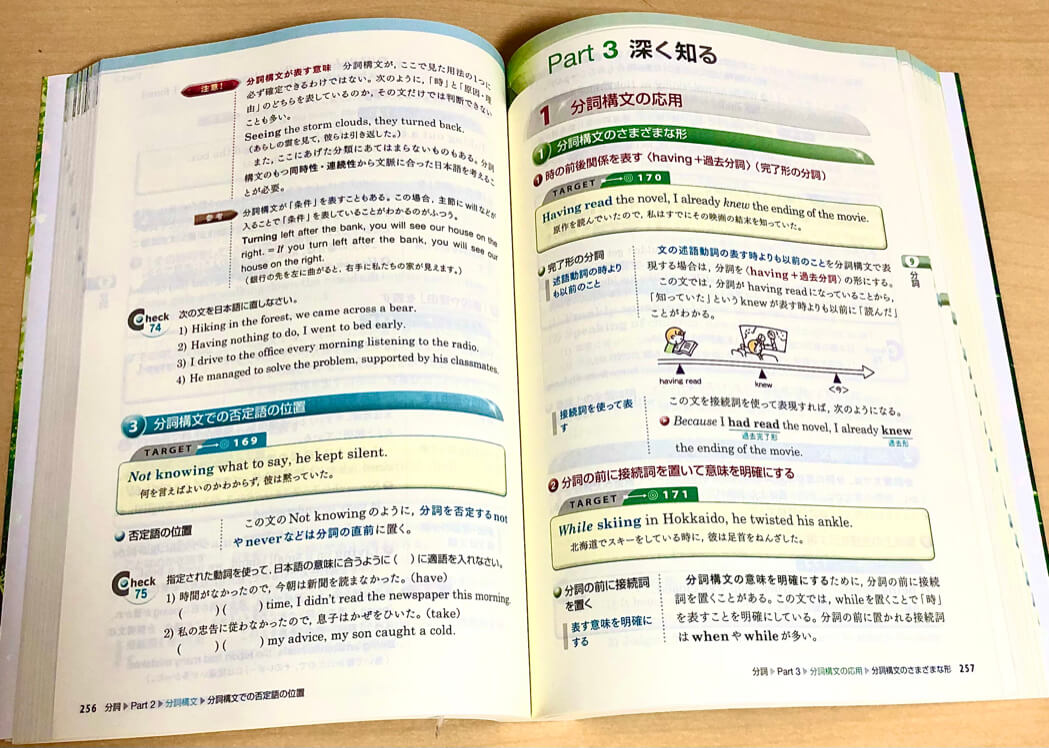 注意！
分詞構文が表す意味　分詞構文が，ここで見た用法の1つに
必ず確定できるわけではない。次のように，「時」と「原因・理
由」のどちらを表しているのか，その文だけでは判断できない
ことも多い。
Seeing the storm clouds, they turned back.
（あらしの雲を見て，彼らは引き返した。）
また，ここにあげた分類にあてはまらないものもある。分詞
構文のもつ同時性・連続性から文脈に合った日本語を考えるこ
とが必要。
参考
分詞構文が「条件」を表すこともある。この場合，主節にwillなどが
入ることで「条件」を表していることがわかるのがふつう。
Turning left after the bank, you will see our house on the
right. = If you turn left after the bank, you will see our
house on the right.
（銀行の先を左に曲がると，右手に私たちの家が見えます。）
Check 74
次の文を日本語に直しなさい。
1) Hiking in the forest, we came across a bear.
2) Having nothing to do, I went to bed early.
3) I drive to the office every morning listening to the radio.
4) He managed to solve the problem, supported by his classmates.
3 分詞構文での否定語の位置
TARGET 169
Not knowing what to say, he kept silent.
何を言えばよいのかわからず，彼は黙っていた。
否定語の位置
この文のNot knowingのように，分詞を否定するnot
やneverなどは分詞の直前に置く。
Check 75
指定された動詞を使って，日本語の意味に合うように（ ）に適語を入れなさい。
1) 時間がなかったので，今朝は新聞を読まなかった。(have)
( ) ( ) time, I didn't read the newspaper this morning.
2) 私の忠告に従わなかったので，息子はかぜをひいた。(take)
( ) ( ) my advice, my son caught a cold.
256 分詞▶Part 2▶分詞構文▶分詞構文での否定語の位置
Part 3 深く知る
1 分詞構文の応用
1 分詞構文のさまざまな形
1 時の前後関係を表す〈having＋過去分詞〉（完了形の分詞）
TARGET 170
Having read the novel, I already knew the ending of the movie.
原作を読んでいたので，私はすでにその映画の結末を知っていた。
完了形の分詞
述語動詞の時より
も以前のこと
文の述語動詞の表す時よりも以前のことを分詞構文で表
現する場合は，分詞を〈having＋過去分詞〉の形にする。
この文では，分詞がhaving readになっていることから，
「知っていた」というknewが表す時よりも以前に「読んだ」
ことがわかる。
having read
knew
〈今〉
接続詞を使って表
す
この文を接続詞を使って表現すれば，次のようになる。
Because I had read the novel, I already knew
過去完了形
過去形
the ending of the movie.
2 分詞の前に接続詞を置いて意味を明確にする
TARGET 171
While skiing in Hokkaido, he twisted his ankle.
北海道でスキーをしている時に，彼は足首をねんざした。
分詞の前に接続詞
を置く
表す意味を明確に
する
分詞構文の意味を明確にするために，分詞の前に接続
詞を置くことがある。この文では，whileを置くことで「時」
を表すことを明確にしている。分詞の前に置かれる接続詞
はwhenやwhileが多い。
9
分詞
分詞▶Part 3▶分詞構文の応用▶分詞構文のさまざまな形 257